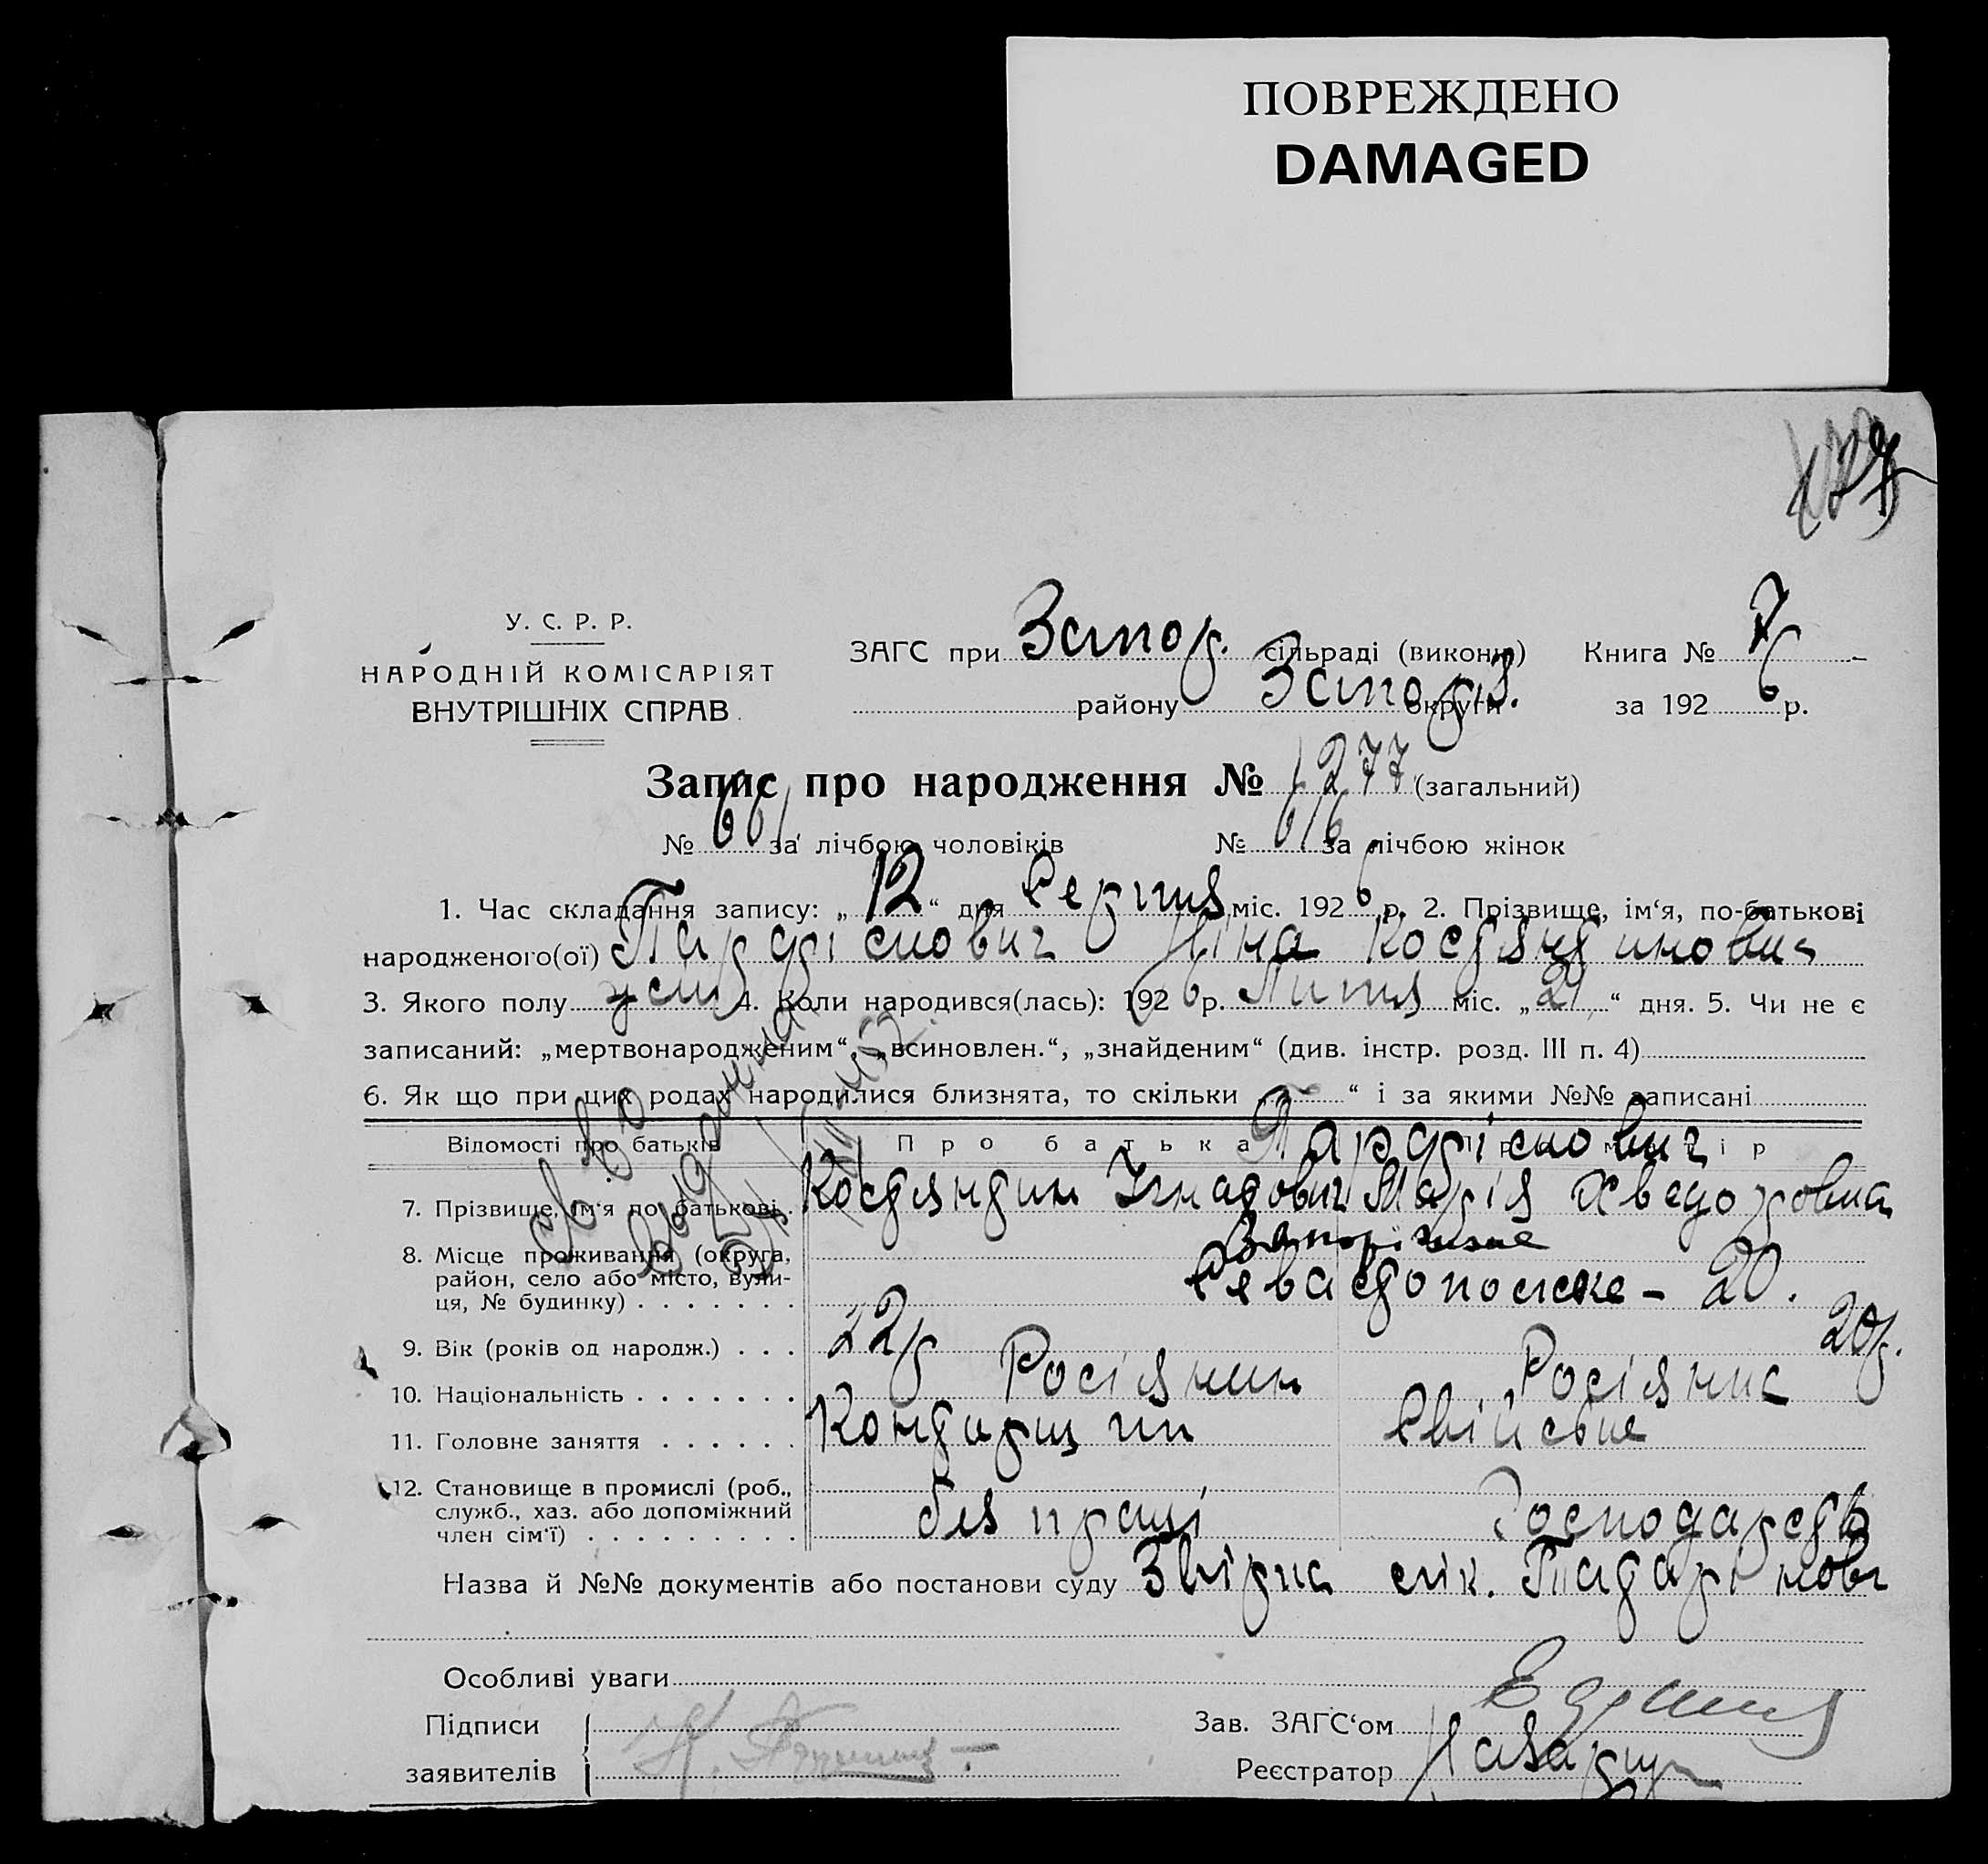 ПОВРЕЖДЕНО
DAMAGED
У. С. Р. Р.
НАРОДНІЙ КОМІСАРІЯТ
ВНУТРІШНІХ СПРАВ
ЗАГС при Запор. сільраді (виконк)
району Запоріз. округи
Книга № 7
за 1926 р.
Запис про народження № 1277 (загальний)
№ 661 за лічбою чоловіків № 616 за лічбою жінок
1. Час складання запису: „12“ дня Серпня міс. 1926 р. 2. Прізвище, ім‘я, по-батькові
народженого(ої) Ніна
3. Якого полу жін 4. Коли народився(лась): 1926 р. Липня міс. „21“ дня. 5. Чи не є
записаний: „мертвонародженим“, „всиновлен.“, „знайденим“ (див. інстр. розд. III п. 4)
6. Як що при цих родах народилися близнята, то скільки „ “ і за якими №№ записані
Відомості про батьків Про батька Про матір
7. Прізвище, ім‘я по батькові Костянтин Ігнатович Марія Хведоровна
8. Місце проживання (округа, район, село або місто, вули-
ця, № будинку) Запоріжжє
Севастопольске - 20.
9. Вік (років од народж.) 22р 20р.
10. Національність Росіянин Росіянка
11. Головне заняття Кондарщик Свійське
12. Становище в промислі (роб.,
служб., хаз. або допоміжний
член сім‘ї) без праці Господарств
Назва й №№ документів або постанови суду Звірка
Особливі уваги
Підписи
заявителів
Зав. ЗАГС‘ом
Реєстратор